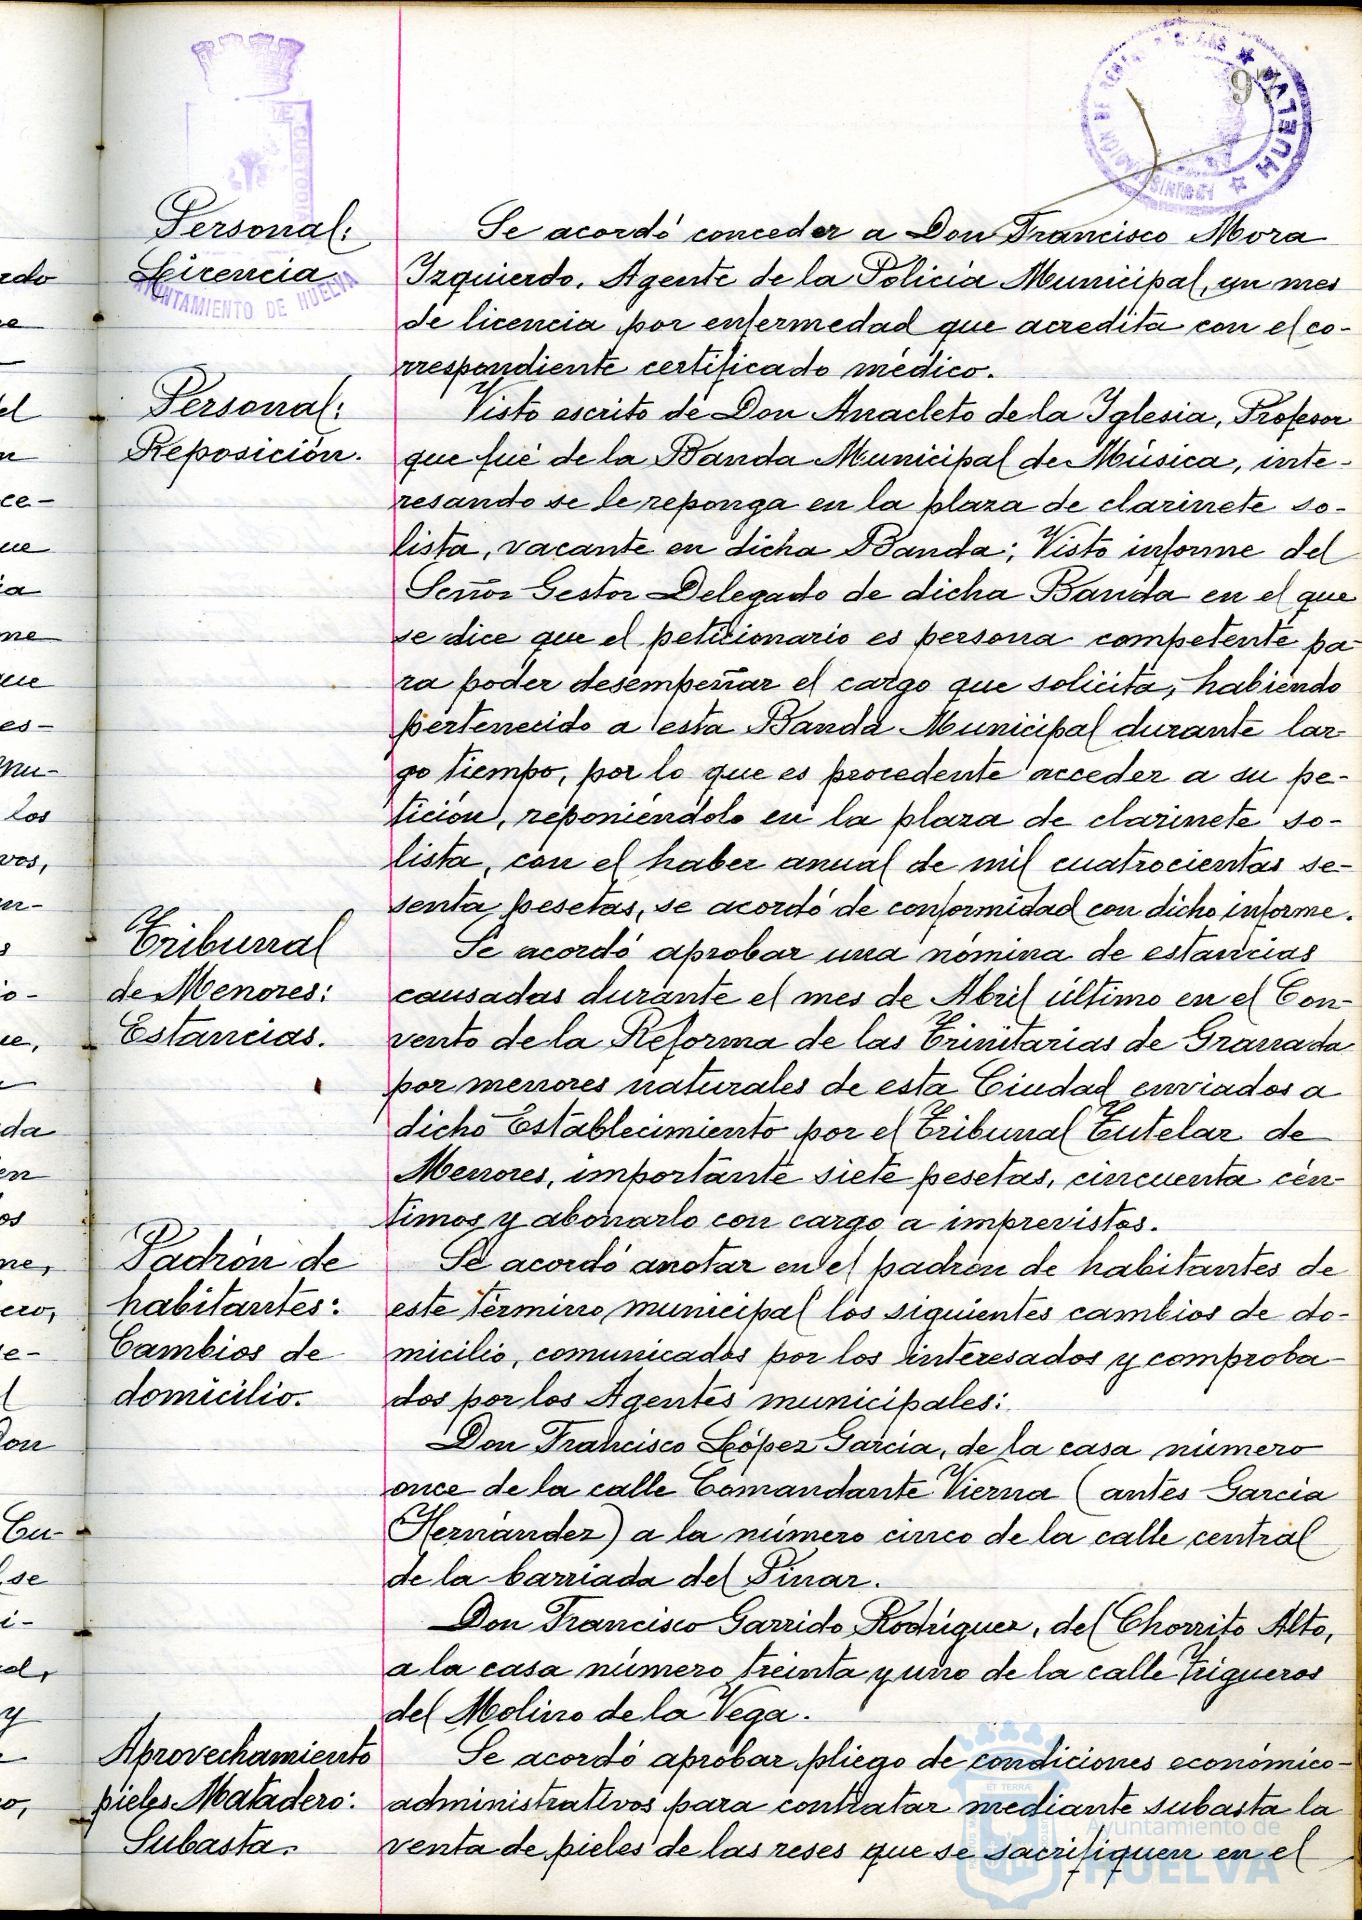 97
HUELVA
CUSTODIA
AYUNTAMIENTO DE HUELVA
Personal:
Licencia
Se acordó conceder a Don Francisco Mora
Izquierdo, Agente de la Policía Municipal, un mes
de licencia por enfermedad que acredita con el co-
rrespondiente certificado médico.
Personal:
Reposición.
Visto escrito de Don Anacleto de la Yglesia, Profesor
que fué de la Banda Municipal de Música, inte-
resando se le reponga en la plaza de clarinete so-
lista, vacante en dicha Banda; Visto informe del
Señor Gestor Delegado de dicha Banda en el que
se dice que el peticionario es persona competente pa-
ra poder desempeñar el cargo que solicita, habiendo
pertenecido a esta Banda Municipal durante lar-
go tiempo, por lo que es procedente acceder a su pe-
tición, reponiéndolo en la plaza de clarinete so-
lista, con el haber anual de mil cuatrocientas se-
senta pesetas, se acordó de conformidad con dicho informe.
Tribunal
de Menores:
Estancias.
Se acordó aprobar una nómina de estancias
causadas durante el mes de Abril último en el Con-
vento de la Reforma de las Trinitarias de Granada
por menores naturales de esta Ciudad enviados a
dicho Establecimiento por el Tribunal Tutelar de
Menores, importante siete pesetas, cincuenta cén-
timos y abonarlo con cargo a imprevistos.
Padrón de
habitantes:
Cambios de
domicilio.
Se acordó anotar en el padrón de habitantes de
este término municipal los siguientes cambios de do-
micilio, comunicados por los interesados y comproba-
dos por los Agentes municipales:
Don Francisco López García, de la casa número
once de la calle Comandante Vierna (antes García
Hernández) a la número cinco de la calle central
de la barriada del Pinar.
Don Francisco Garrido Rodríguez, del Chorrito Alto,
a la casa número treinta y uno de la calle Trigueros
del Molino de la Vega.
Aprovechamiento
pieles Matadero:
Subasta.
Se acordó aprobar pliego de condiciones económico-
administrativos para contratar mediante subasta la
venta de pieles de las reses que se sacrifiquen en el
Ayuntamiento de
HUELVA